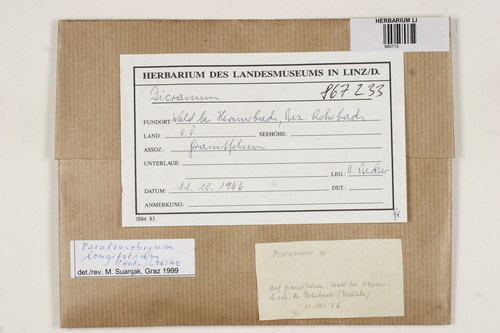 HERBARIUM LI
980715
HERBARIUM DES LANDESMUSEUMS IN LINZ/D.
Dicranum 867233
FUNDORT: Wald bei Bez. Rohrbach
LAND: O.Ö. SEEHÖHE:
ASSOZ.: Granitfelsen
UNTERLAGE:
LEG.: H. Becker
DATUM: 11.10.1946 DET.:
ANMERKUNG:
I884 83
Paraleucobryum
longifolium
(Hedw.) Loeske
det./rev. M. Suanjak, Graz 1999
Dicranum sp.
Auf Granitfelsen, Wald bei
Rohrbach
11. Okt. 46